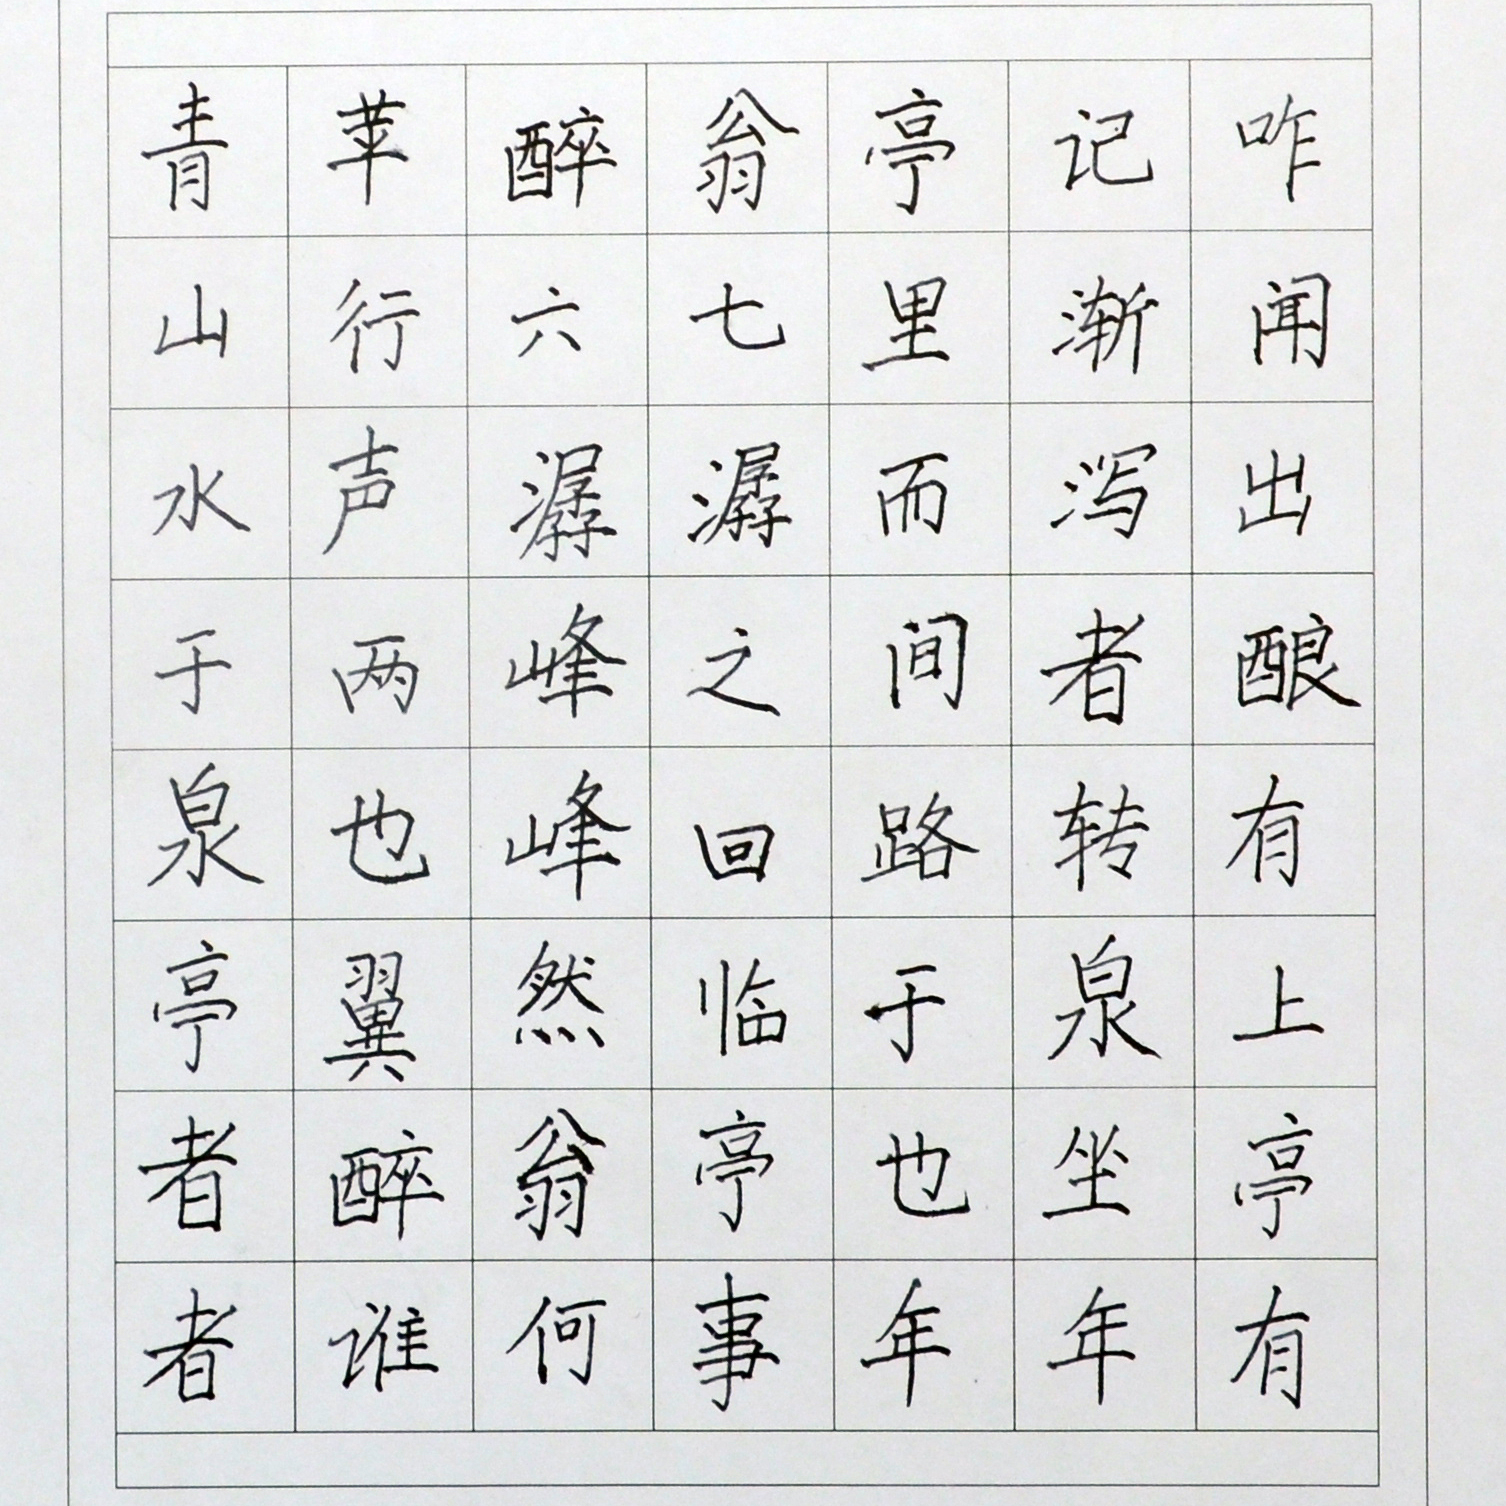 青苹醉翁亭记咋
山行六七里渐闻
水声潺潺而泻出
于两峰之间者酿
泉也峰回路转有
亭翼然临于泉上
者醉翁亭也坐亭
者谁何事年年有